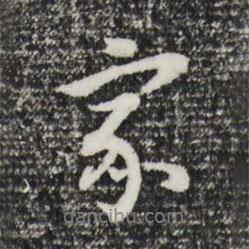 家
dancihu.com